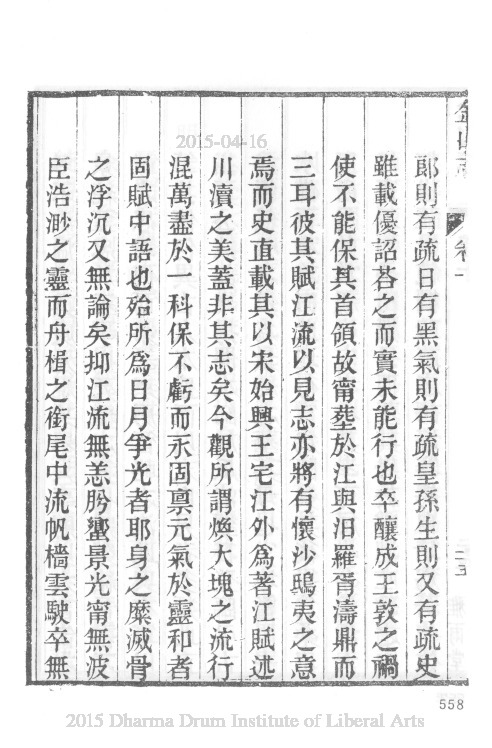 2015-04-16
金山志
卷一
二十五
郎則有疏日有黑氣則有疏皇孫生則又有疏史
雖載優詔荅之而實未能行也卒釀成王敦之禍
使不能保其首領故甯塟於江與汨羅胥濤鼎而
三耳彼其賦江流以見志亦將有懷沙鴟夷之意
焉而史直載其以宋始興王宅江外為著江賦述
川瀆之美蓋非其志矣今觀所謂煥大塊之流行
混萬盡於一科保不虧而永固禀元氣於靈和者
固賦中語也殆所為日月爭光者耶身之糜滅骨
之浮沉又無論矣抑江流無恙肸蠁景光甯無波
臣浩渺之靈而舟楫之銜尾中流帆檣雲駛卒無
558
2015 Dharma Drum Institute of Liberal Arts